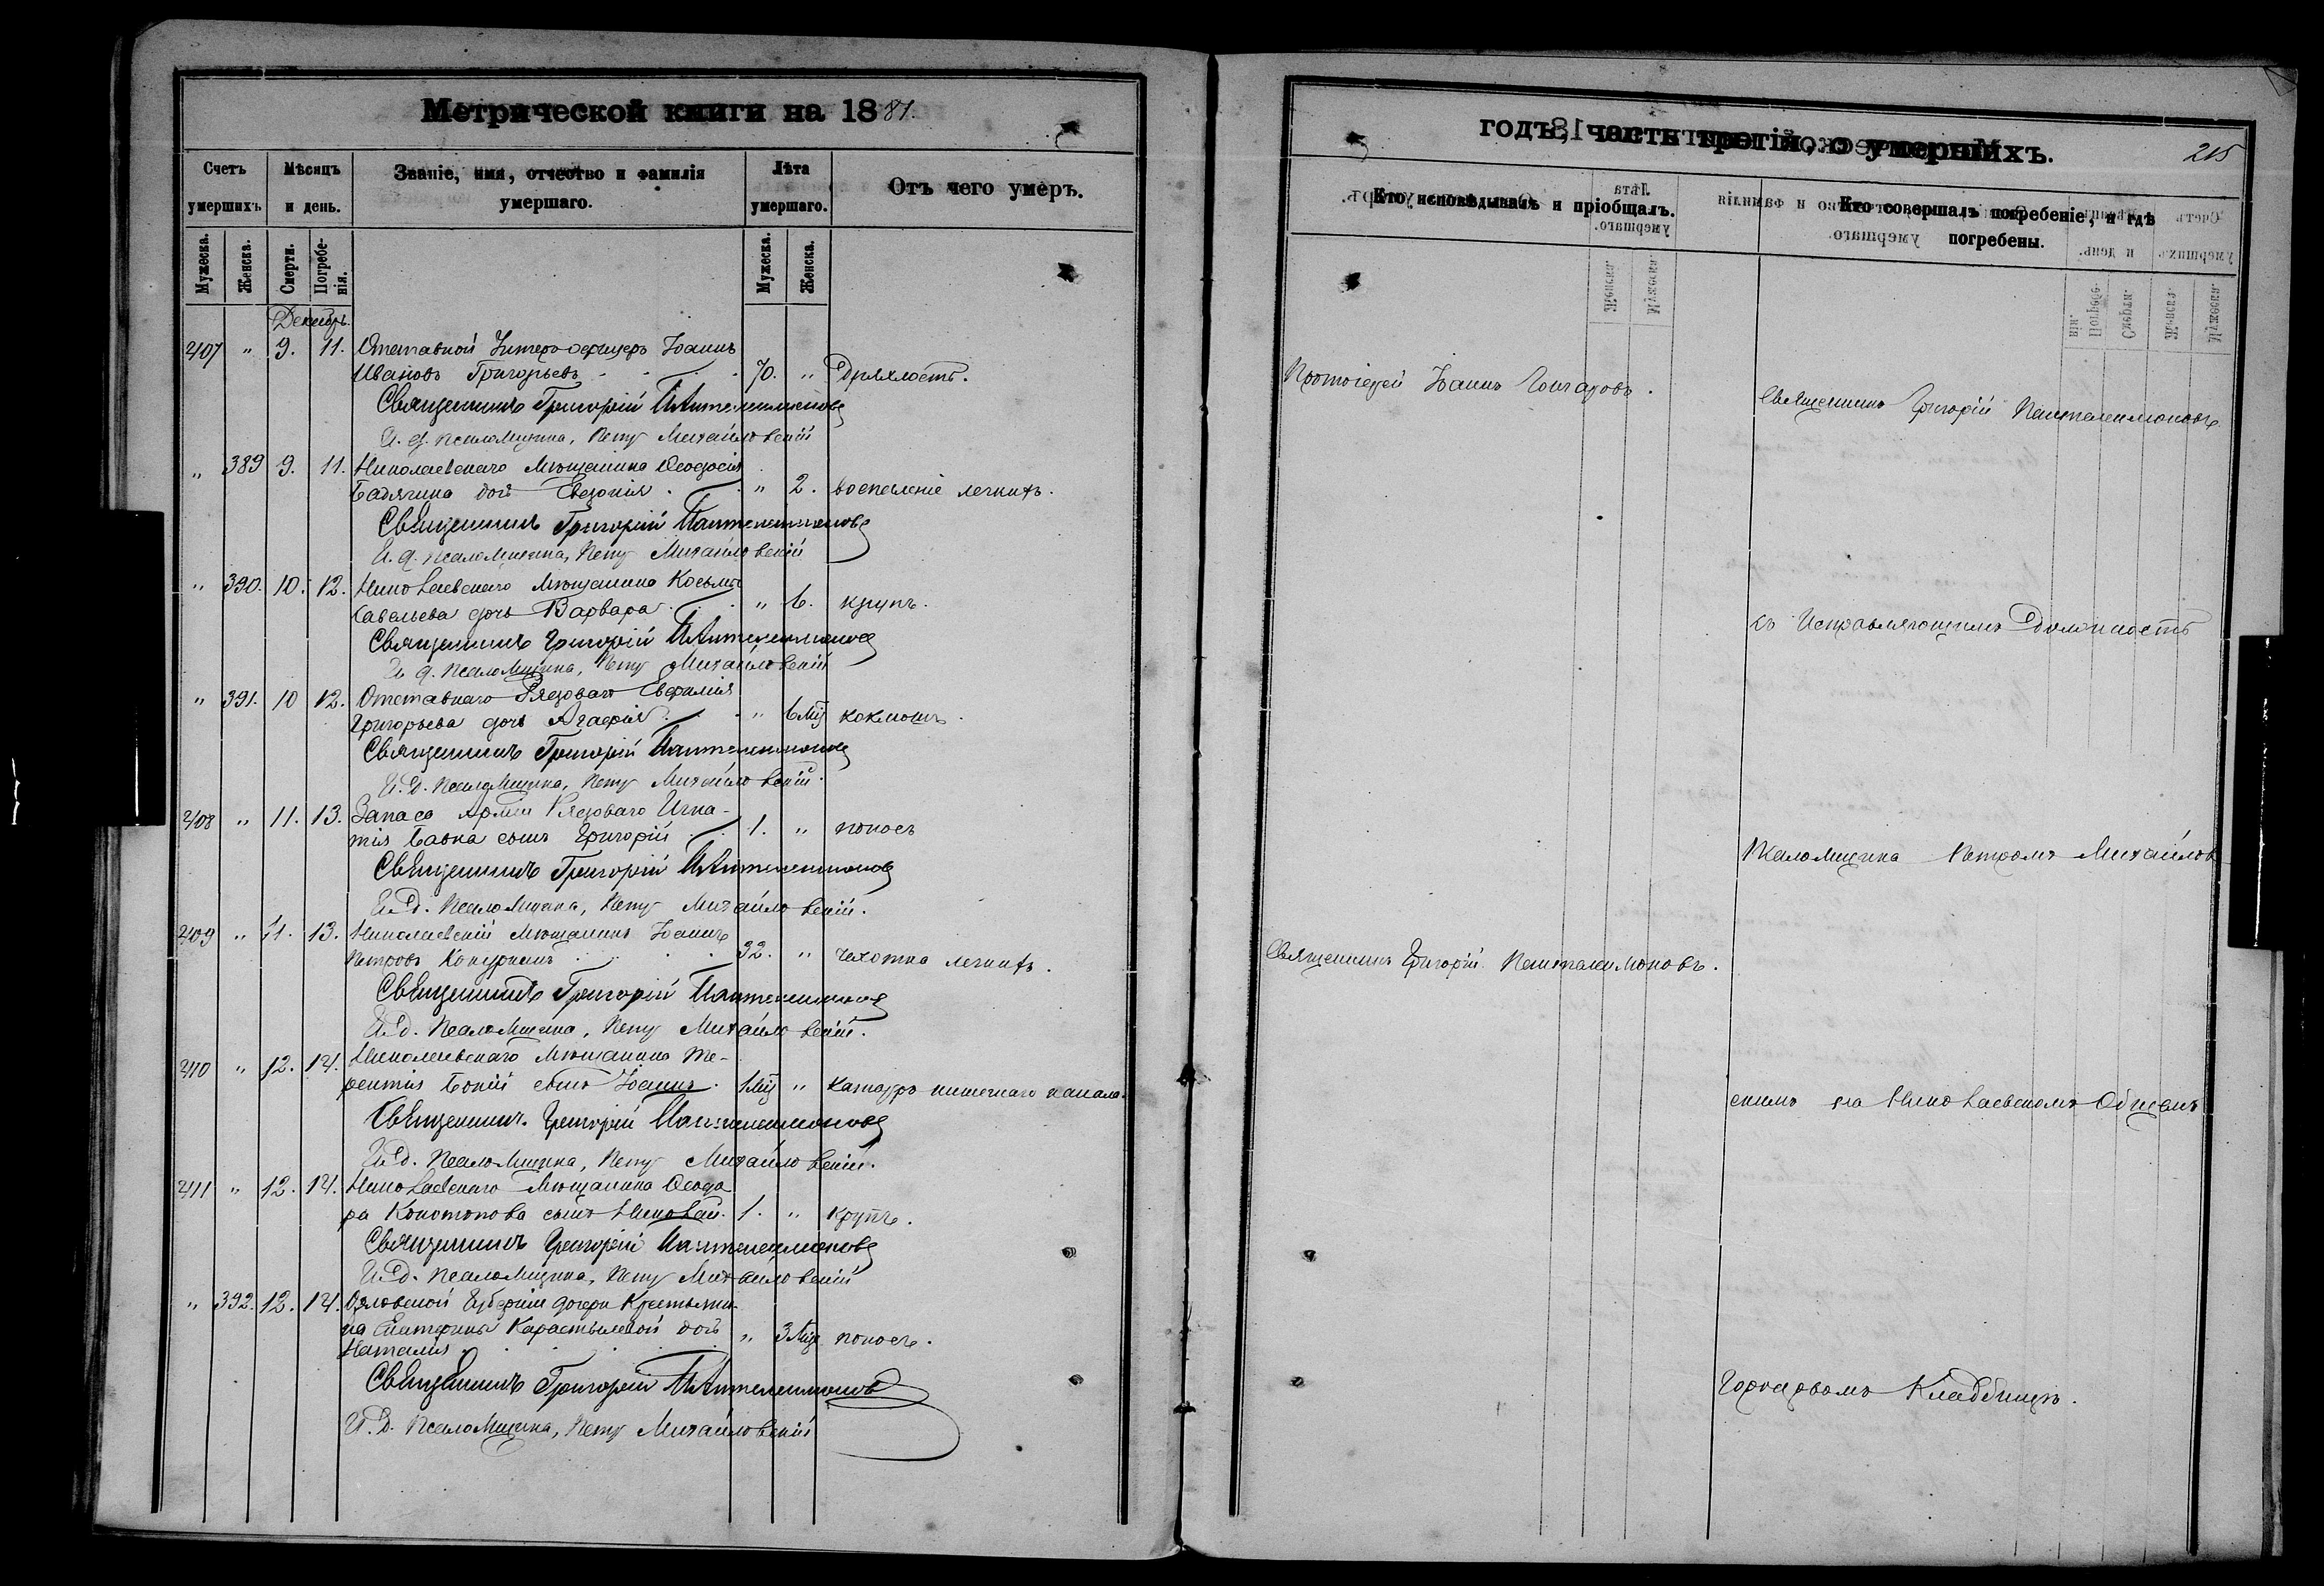 Метрической книги на 1881.
Счетъ умершихъ.
Мѣсяцъ и день.
Званіе, имя, отчество и фамилія умершаго.
Лѣта умершаго.
Отъ чего умеръ.
Мужеска. Женска. Смерти. Погребенія. Мужеска. Женска.
Декабрь.
407 " 9. 11. Отставной Унтеръ-офицеръ Іоаннъ
Ивановъ Григорьевъ 70. " Дряхлость.
Священникъ Григорій Пантелеимоновъ
И. д. псаломщика, Петръ Михайловскій
" 389 9. 11. Николаевскаго Мѣщанина Ѳеодосія
дочь Евдокія " 2. воспаленіе легкихъ.
Священникъ Григорій Пантелеимоновъ
И. д. псаломщика, Петръ Михайловскій
" 390. 10. 12. Николаевскаго Мѣщанина Косьмы
Савельева дочь Варвара " 6. крупъ.
Священникъ Григорій Пантелеимоновъ
И. д. псаломщика, Петръ Михайловскій
" 391. 10 12. Отставнаго Рядоваго Евфимія
Григорьева дочь Агафія " 6 мц коклюшъ.
Священникъ Григорій Пантелеимоновъ
И. д. псаломщика, Петръ Михайловскій.
408 " 11. 13. Запаса Арміи Рядоваго Игна-
тія Савка сынъ Григорій 1. " поносъ
Священникъ Григорій Пантелеимоновъ
И. д. псаломщика, Петръ Михайловскій.
409 " 11. 13. Николаевскій Мѣщанинъ Іоаннъ
Петровъ 32. " чахотка легкихъ.
Священникъ Григорій Пантелеимоновъ
И. д. псаломщика, Петръ Михайловскій.
410 " 12. 14. Николаевскаго Мѣщанина Те-
рентія сынъ Іоаннъ. 1 мц " катарръ кишечнаго канала.
Священникъ Григорій Пантелеимоновъ
И. д. псаломщика, Петръ Михайловскій.
411 " 12. 14. Николаевскаго Мѣщанина Ѳеодо
ра Конотопова сынъ Николай. 1. " крупъ.
Священникъ Григорій Пантелеимоновъ
И. д. псаломщика, Петръ Михайловскій
" 392. 12. 14. Орловской Губерніи дочери Крестьяни-
на Екатерины дочь
Наталія " 3 мц поносъ.
Священникъ Григорій Пантелеимоновъ
И. д. псаломщика, Петръ Михайловскій
годъ, часть третія, о умершихъ.
215
Кто исповѣдывалъ и пріобщалъ.
Кто совершалъ погребеніе, и гдѣ погребены.
Протоіерей Іоаннъ Гончаровъ.
Священникъ Григорій Пантелеимоновъ
съ Исправляющимъ Должность
Псаломщика Петромъ Михайлов
Священникъ Григорій Пантелеимоновъ.
скимъ на Николаевскомъ Общемъ
Городовомъ Кладбищѣ.